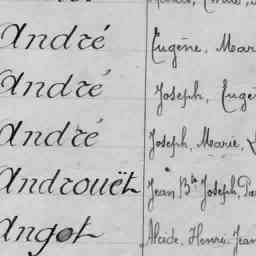 André Eugène, Mar
André Joseph, Eugè
André Joseph, Marie,
Androuët Jean Bte Joseph, Pa
Angot Alcide, Henri, Jean